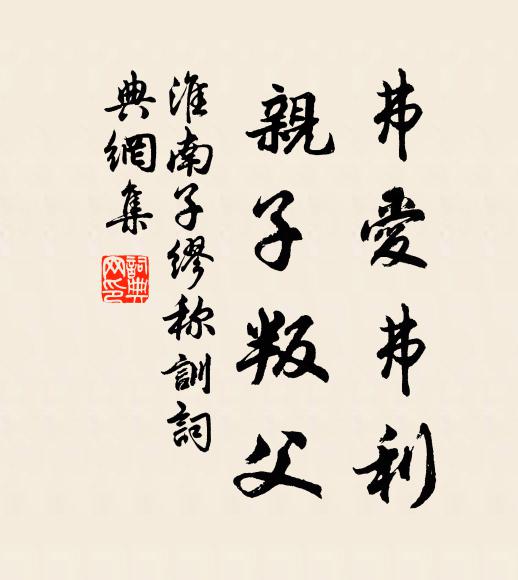 弗愛弗利
親子叛父
淮南子繆称訓詞
典網集
詞典網印